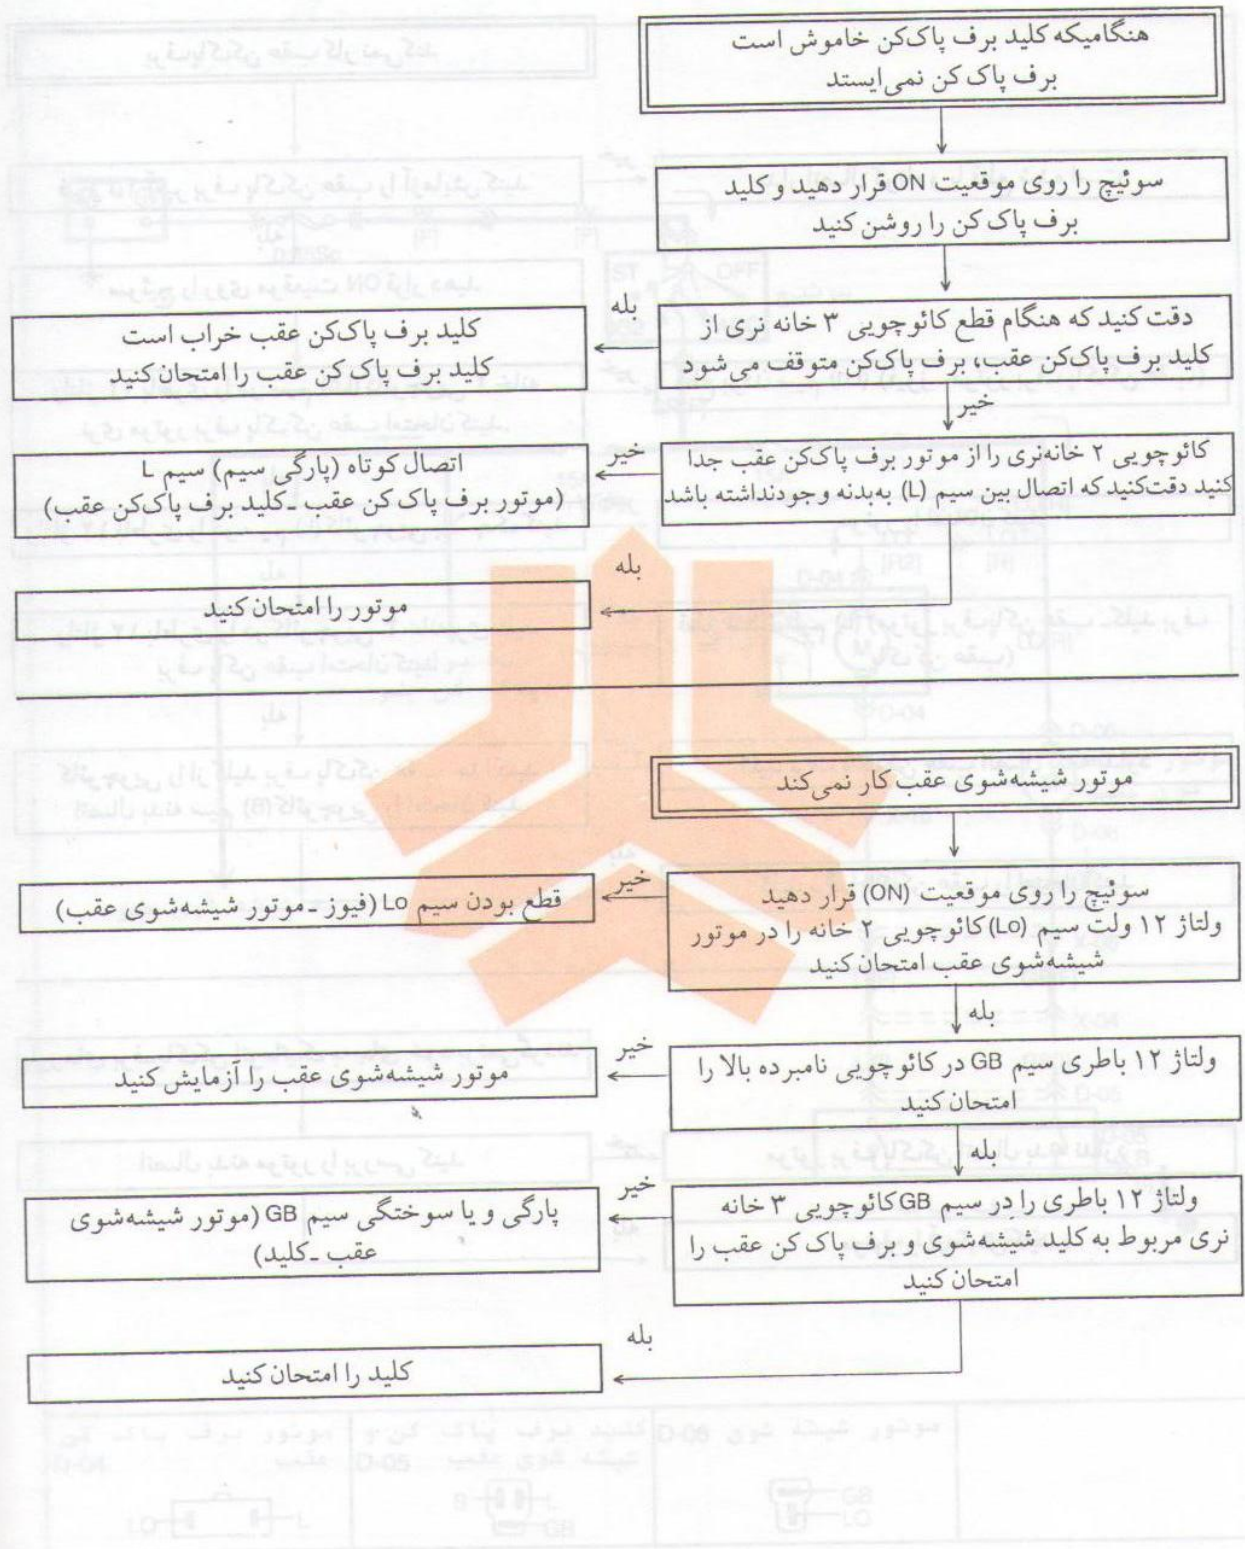 هنگامیکه کلید برف پاک‌کن خاموش است
برف پاک کن نمی‌ایستد
سوئیچ را روی موقعیت ON قرار دهید و کلید
برف پاک کن را روشن کنید
دقت کنید که هنگام قطع کائوچویی ۳ خانه نری از
کلید برف پاک‌کن عقب، برف پاک‌کن متوقف می‌شود
بله
کلید برف پاک‌کن عقب خراب است
کلید برف پاک کن عقب را امتحان کنید
خیر
کائوچویی ۲ خانه‌نری را از موتور برف پاک‌کن عقب جدا
کنید دقت‌کنید که اتصال بین سیم (L) به‌بدنه وجودنداشته باشد
خیر
اتصال کوتاه (پارگی سیم) سیم L
(موتور برف پاک کن عقب ـ کلید برف پاک‌کن عقب)
بله
موتور را امتحان کنید
موتور شیشه‌شوی عقب کار نمی‌کند
سوئیچ را روی موقعیت (ON) قرار دهید
ولتاژ ۱۲ ولت سیم (Lo) کائوچویی ۲ خانه را در موتور
شیشه‌شوی عقب امتحان کنید
خیر
قطع بودن سیم Lo (فیوز ـ موتور شیشه‌شوی عقب)
بله
ولتاژ ۱۲ باطری سیم GB در کائوچویی نامبرده بالا را
امتحان کنید
خیر
موتور شیشه‌شوی عقب را آزمایش کنید
بله
ولتاژ ۱۲ باطری را در سیم GB کائوچویی ۳ خانه
نری مربوط به کلید شیشه‌شوی و برف پاک کن عقب را
امتحان کنید
خیر
پارگی و یا سوختگی سیم GB (موتور شیشه‌شوی
عقب ـ کلید)
بله
کلید را امتحان کنید